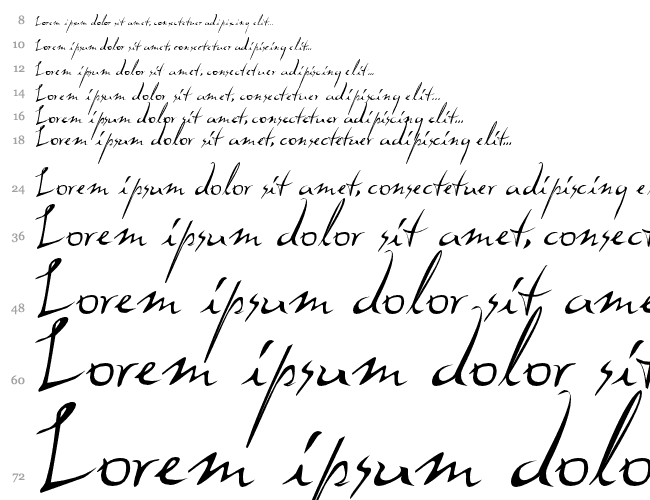 8 Lorem ipsum dolor sit amet, consectetuer adipiscing elit...
10 Lorem ipsum dolor sit amet, consectetuer adipiscing elit...
12 Lorem ipsum dolor sit amet, consectetuer adipiscing elit...
14 Lorem ipsum dolor sit amet, consectetuer adipiscing elit...
16 Lorem ipsum dolor sit amet, consectetuer adipiscing elit...
18 Lorem ipsum dolor sit amet, consectetuer adipiscing elit...
24 Lorem ipsum dolor sit amet, consectetuer adipiscing e
36 Lorem ipsum dolor sit amet, consect
48 Lorem ipsum dolor sit ame
60 Lorem ipsum dolor sit
72 Lorem ipsum dolo